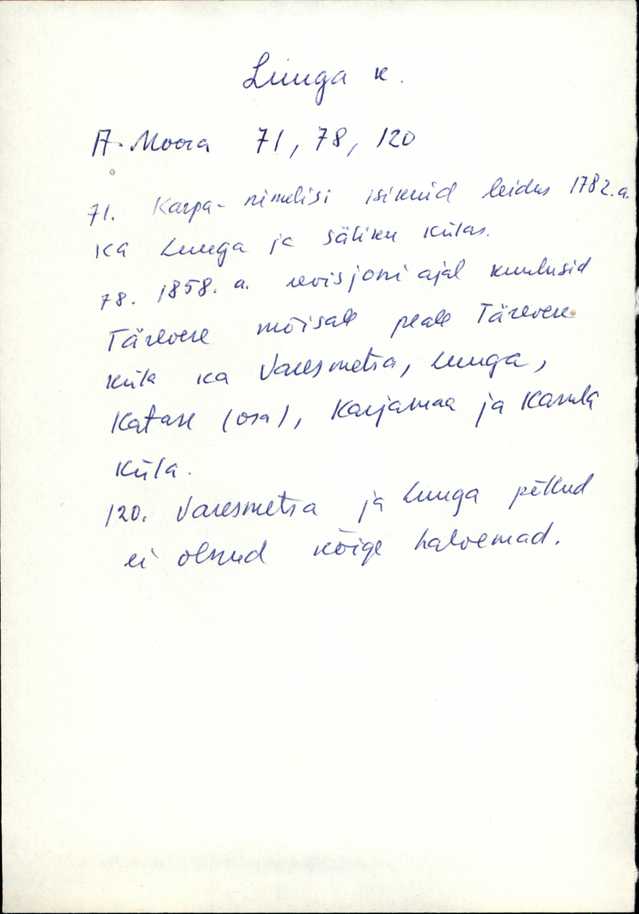 Linuga k.
A. Moora 71, 78, 120
71. Karpa-nimelisi isikuid leidus 1782.a.
ka Linuga ja Säliku külas.
78. 1858. a. revisjoni ajal kuulusid
Tärevere mõisale peale Tärevere
küla ka Varesmetsa, Linuga,
Katase (osa), Karjamaa ja Kasula
küla.
120. Varesmetsa ja Linuga põllud
ei olnud kõige halvemad.